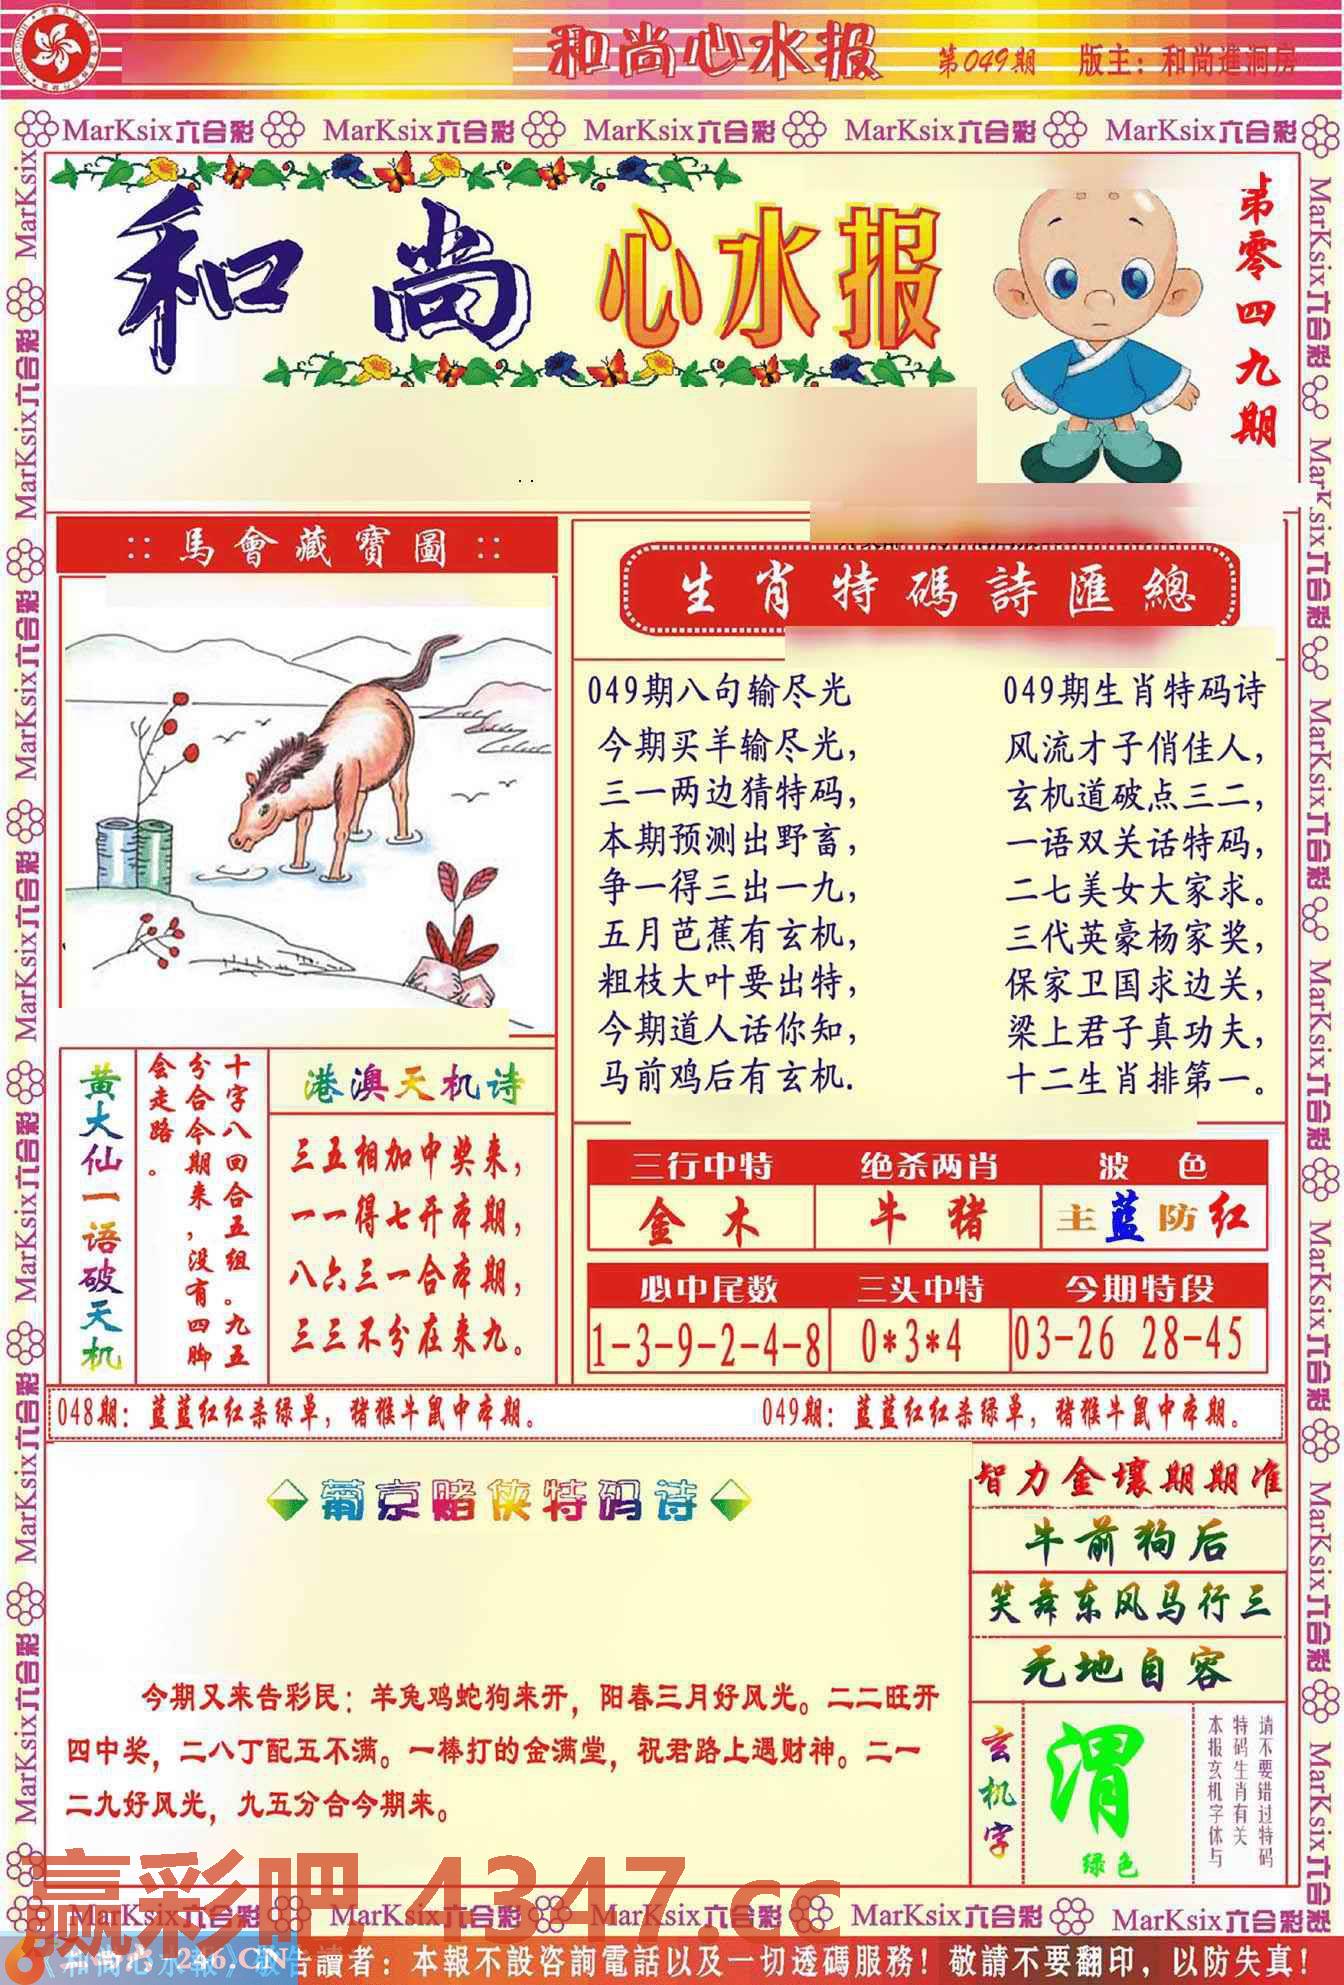 和尚心水报
第049期
版主：和尚進洞房
MarKsix六合彩 MarKsix六合彩 MarKsix六合彩 MarKsix六合彩 MarKsix六合彩
和尚心水报
第零四九期
::馬會藏寶圖::
生肖特碼詩匯總
049期八句输尽光
今期买羊输尽光，
三一两边猜特码，
本期预测出野畜，
争一得三出一九，
五月芭蕉有玄机，
粗枝大叶要出特，
今期道人话你知，
马前鸡后有玄机.
049期生肖特码诗
风流才子俏佳人，
玄机道破点三二，
一语双关话特码，
二七美女大家求。
三代英豪杨家奖，
保家卫国求边关，
梁上君子真功夫，
十二生肖排第一。
黄大仙一语破天机
十字八回合五组。九五
分合今期来，没有四脚
会走路。
港澳天机诗
三五相加中奖来，
一一得七开本期，
八六三一合本期，
三三不分在来九。
三行中特 绝杀两肖 波色
金木 牛猪 主蓝防红
必中尾数 三头中特 今期特段
1-3-9-2-4-8 0*3*4 03-26 28-45
048期：蓝蓝红红杀绿单，猪猴牛鼠中本期。
049期：蓝蓝红红杀绿单，猪猴牛鼠中本期。
葡京赌侠特码诗
今期又来告彩民：羊兔鸡蛇狗来开，阳春三月好风光。二二旺开
四中奖，二八丁配五不满。一棒打的金满堂，祝君路上遇财神。二一
二九好风光，九五分合今期来。
智力金壤期期准
牛前狗后
笑舞东风马行三
无地自容
玄机字
渭
绿色
请不要错过特码
特码生肖有关
本报玄机字体与
赢彩吧 4347.cc
MarKsix六合彩 MarKsix六合彩 MarKsix六合彩 MarKsix六合彩 MarKsix六合彩
246.CN
告讀者：本報不設咨詢電話以及一切透碼服務！敬請不要翻印，以防失真！